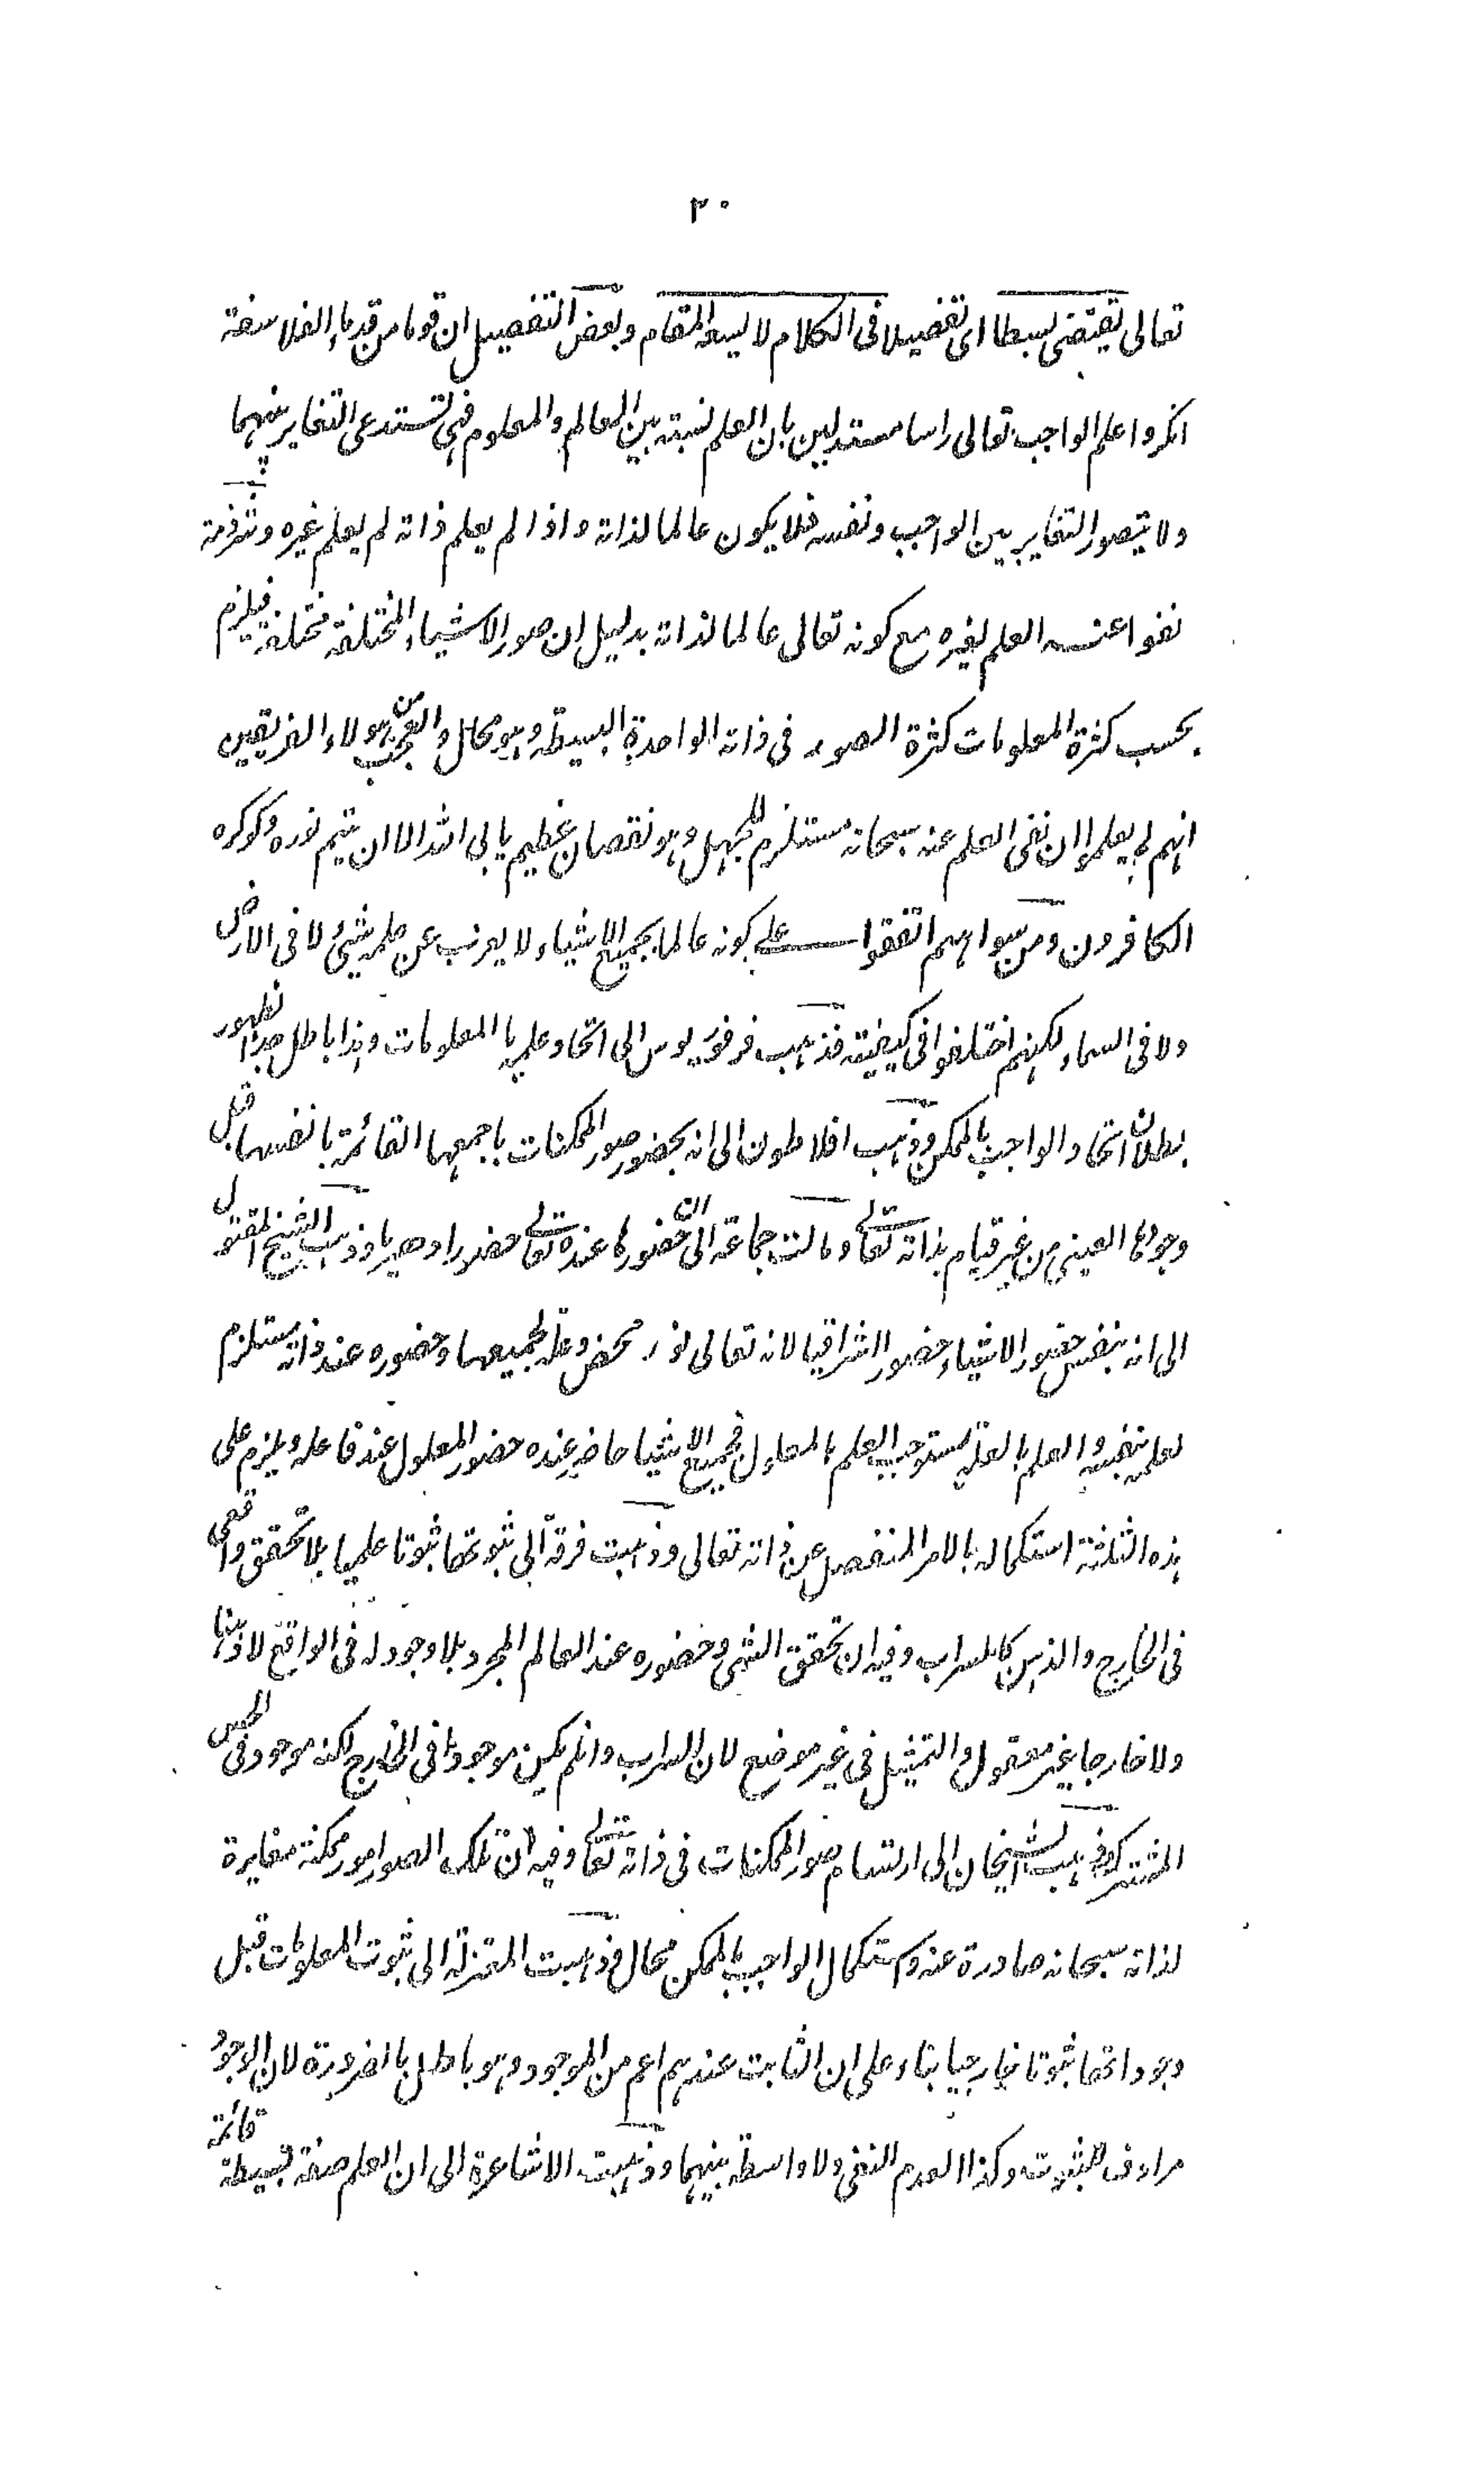 ٢٠
تعالى يقتضى بسطا اى تفصيلا فى الكلام لا يسعه المقام وبعض التفصيل ان قوما من قدماء الفلاسفة
انكروا علم الواجب تعالى راسا مستدلين بان العلم نسبة بين العالم والمعلوم فهى تستدعى التغاير بينهما
ولا يتصور التغاير بين الواجب ونفسه فلا يكون عالما لذاته واذا لم يعلم ذاته لم يعلم غيره وشرذمة
نفوا عنه العلم بغيره مع كونه تعالى عالما لذاته بدليل ان صور الاشياء المختلفة مختلفة فيلزم
بحسب كثرة المعلومات كثرة الصور فى ذاته الواحدة البسيطة وهو محال والعجب من هولاء الفريقين
انهم لم يعلموا ان نفى العلم عنه سبحانه مستلزم للجهل وهو نقصان عظيم يابى الله الا ان يتم نوره ولو كره
الكافرون ومن سواهم اتفقوا على كونه عالما بجميع الاشياء لا يعزب عن علمه شئ لا فى الارض
ولا فى السماء لكنهم اختلفوا فى كيفيته فذهب فرفوريوس الى اتحاد علمه بالمعلومات وهذا باطل جدا لظهور
بطلان اتحاد الواجب بالممكن وذهب افلاطون الى انه بحضور صور الممكنات باجمعها القائمة بانفسها قبل
وجودها العينى من غير قيام بذاته تعالى ومالت جماعة الى ان حضورها عنده تعالى حضورا دهريا وذهب الشيخ المقتول
الى انه بنفس حضور الاشياء حضورا اشراقيا لانه تعالى نور محض وعلة لجميعها وحضوره عند ذاته مستلزم
لعلمه بنفسه والعلم بالعلة يستوجب العلم بالمعلول فجميع الاشياء حاضر عنده حضور المعلول عند فاعله ويلزم على
هذه الثلثة استكماله بالامر المنفصل عن ذاته تعالى وذهبت فرقة الى ثبوتها ثبوتا علميا بلا تحقق واقعى
فى الخارج والذهن كالسراب وفيه ان تحقق الشئ وحضوره عند العالم المجرد بلا وجود له فى الواقع لا ذهنا
ولا خارجا غير معقول والتمثيل فى غير موضع لان السراب وان لم يكن موجودا فى الخارج لكنه موجود فى الحس
المشترك وذهب الشيخان الى ارتسام صور الممكنات فى ذاته تعالى وفيه ان تلك الصور امور ممكنة مغايرة
لذاته سبحانه صادرة عنه واستكمال الواجب بالممكن محال وذهبت المعتزلة الى ثبوت المعلومات قبل
وجوداتها ثبوتا خارجيا بناء على ان الثابت عندهم اعم من الموجود وهو باطل بالضرورة لان الوجود
مرادف للثبوت وكذا العدم النفى ولا واسطة بينهما وذهبت الاشاعرة الى ان العلم صفة بسيطة قائمة